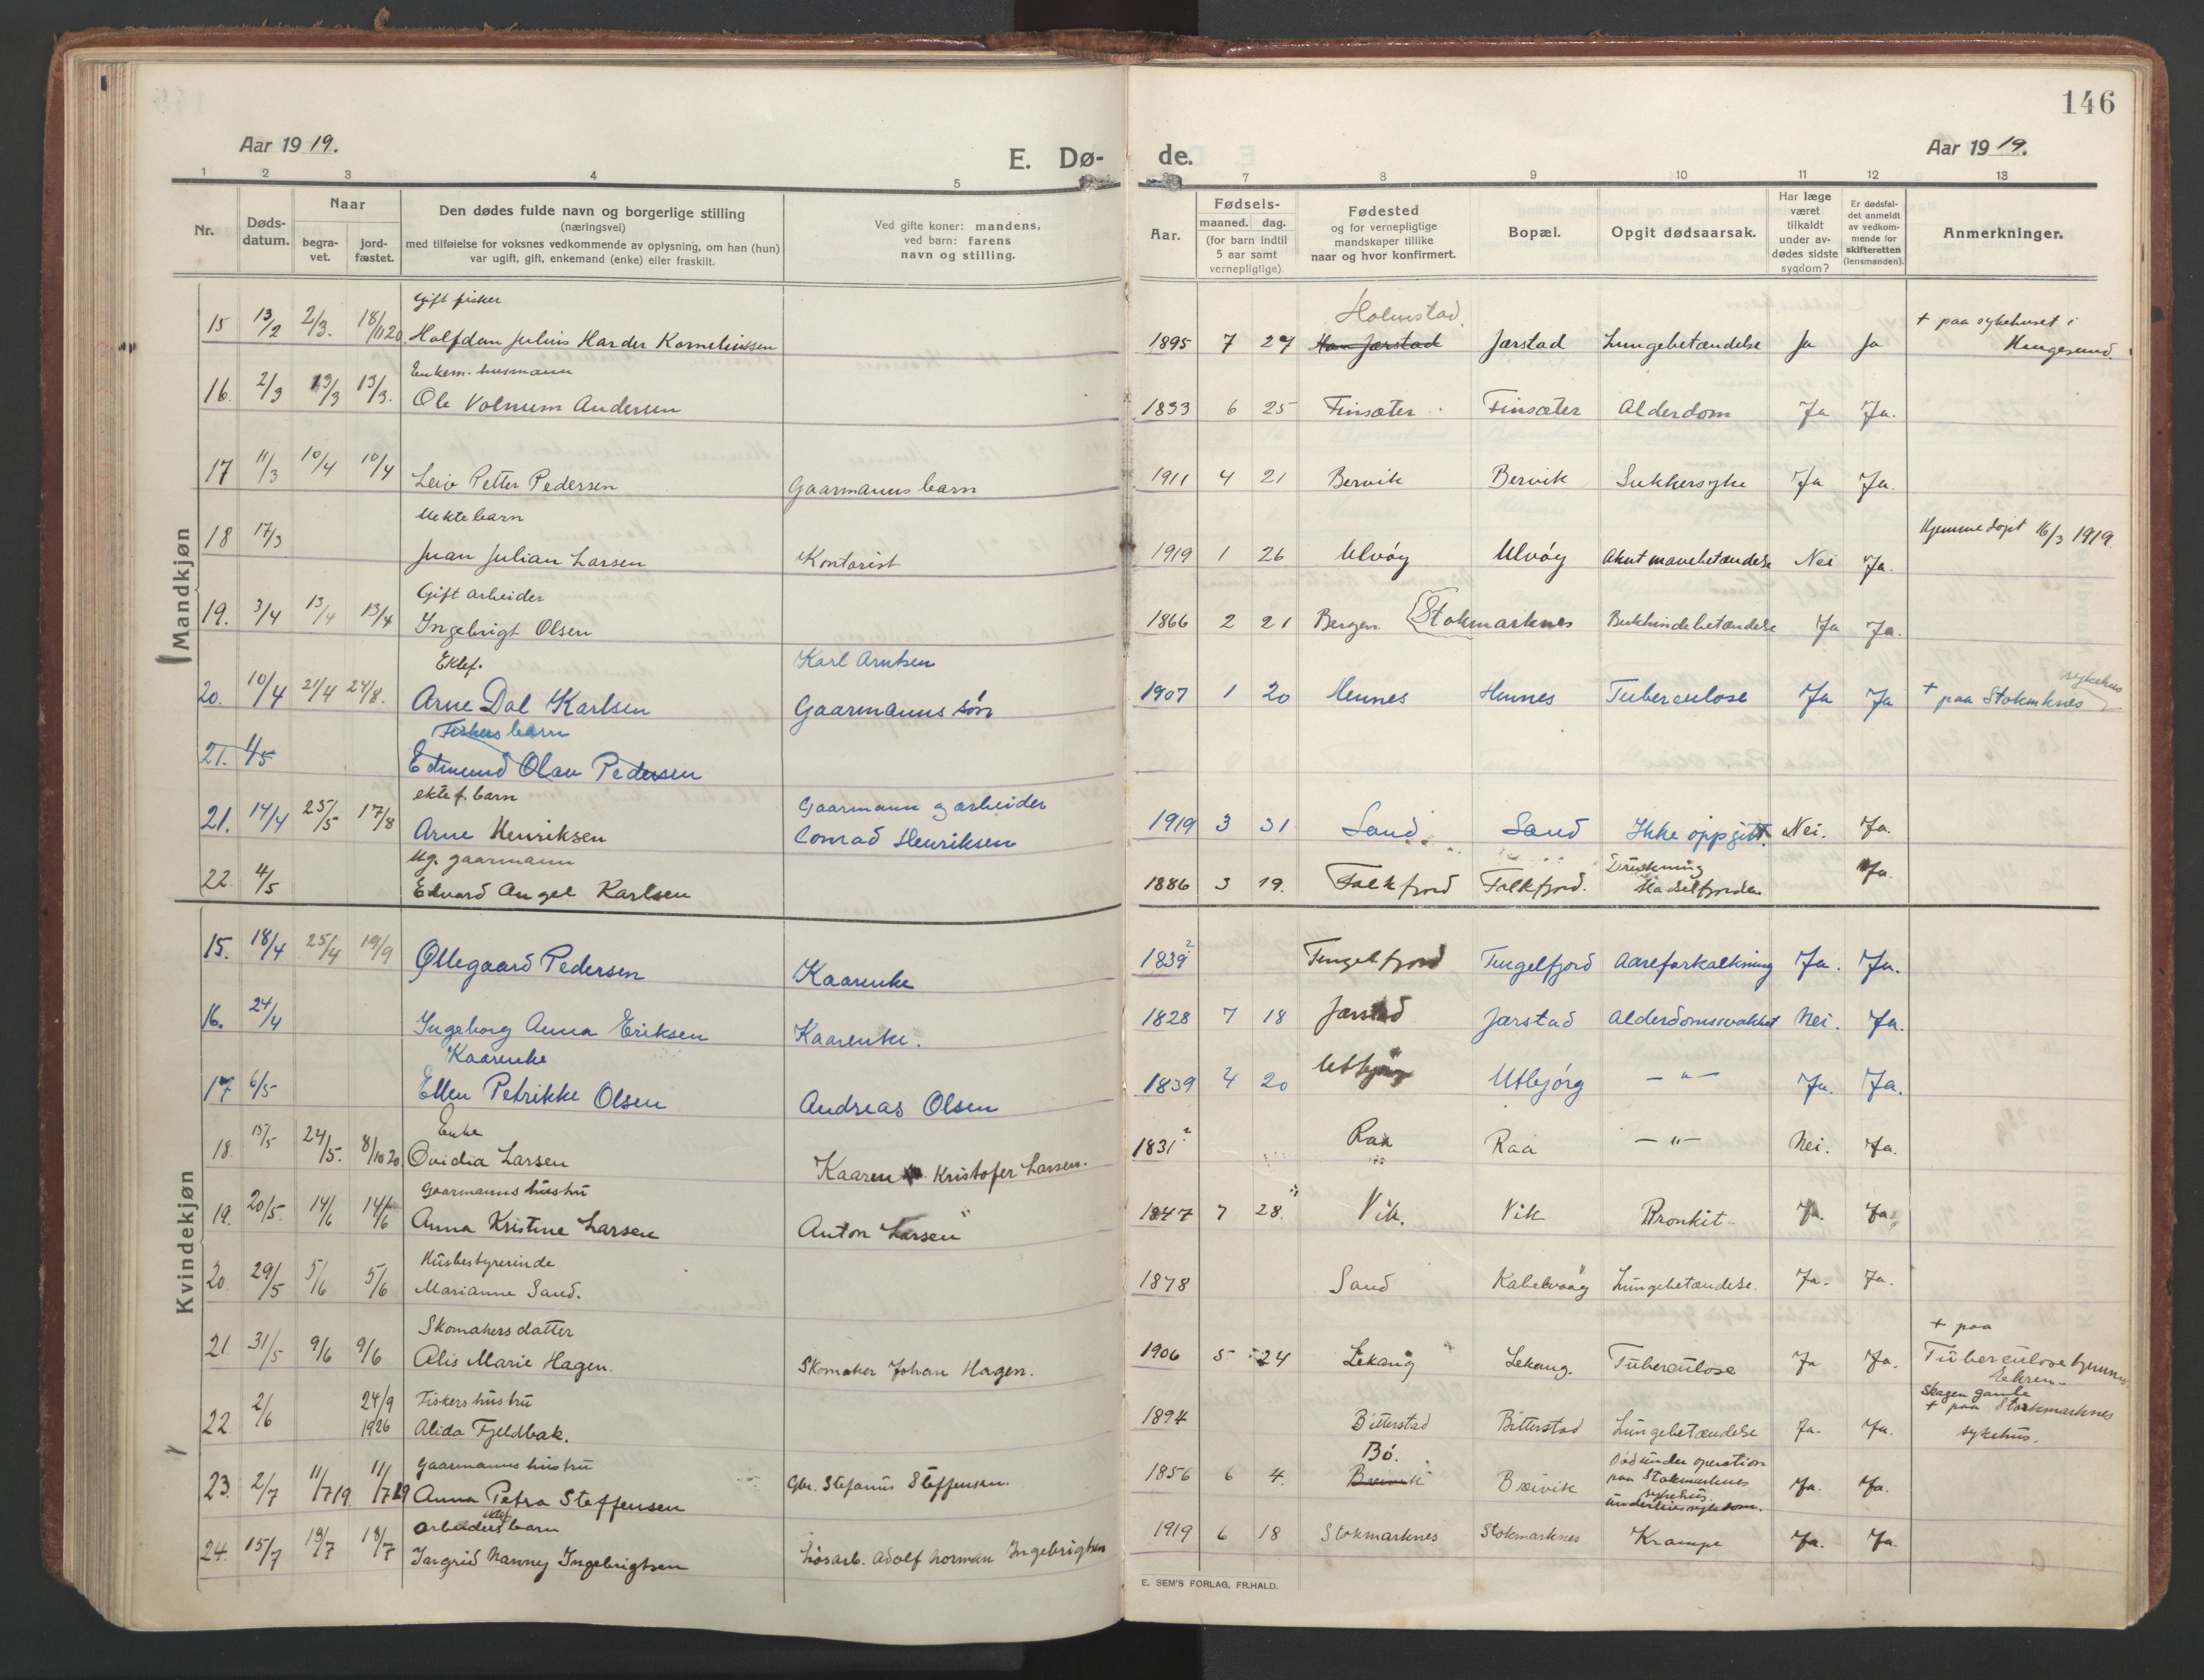 146
Aar 1919.
E. Dø- de.
Aar 1919.
1 2 3 4 5 7 8 9 10 11 12 13
Nr.
Døds-
datum.
Naar
begra-
vet.
jord-
fæstet.
Den dødes fulde navn og borgerlige stilling
(næringsvei)
med tilføielse for voksnes vedkommende av oplysning, om han (hun)
var ugift, gift, enkemand (enke) eller fraskilt.
Ved gifte koner: mandens,
ved barn: farens
navn og stilling.
Aar.
Fødsels-
maaned. dag.
(for barn indtil
5 aar samt
vernepligtige).
Fødested
og for vernepligtige
mandskaper tillike
naar og hvor konfirmert.
Bopæl.
Opgit dødsaarsak.
Har læge
været
tilkaldt
under av-
dødes sidste
sygdom?
Er dødsfal-
det anmeldt
av vedkom-
mende for
skifteretten
(lensmanden).
Anmerkninger.
Mandkjøn
Gift fisker Holmstad + paa sykehuset i
15 13/2 2/3. 18/11 20. Halfdan Julius Harder Korneliussen 1895 7 27 Jærstad Jærstad Lungebetændelse Ja Ja Haugesund.
Enkem. husmann
16. 2/3 13/3 13/3. Ole Volnum Andersen 1833 6 25 Finsæter Finsæter Alderdom Ja Ja.
17 11/3 10/4 10/4 Leiv Petter Pedersen Gaarmanns barn 1911 4 21 Bervik Bervik Sukkersyke Ja Ja.
Uekte barn Hjemmedøpt 16/3 1919
18 17/3 Juan Julian Larsen Kontorist 1919 1 26 Ulvøy Ulvøy Akut mavebetændelse Nei Ja.
Gift arbeider
19. 3/4 13/4 13/4 Ingebrigt Olsen 1866 2 21 Bergen Stokmarknes Bukhindebetændelse Ja Ja.
Ektef. Karl Arntsen sykehus
20. 10/4 21/4 24/8. Arne Dal Karlsen Gaarmanns søn 1907 1 20 Hennes Hennes Tuberculose Ja Ja + paa Stokmknes
Fiskers barn
21. 4/5 Edmund Olav Pedersen
ektef. barn Gaarmann og arbeider
21. 14/4 25/5 17/8 Arne Henriksen Conrad Henriksen 1919 3 31 Sand Sand Ikke oppgitt. Nei. Ja.
Ug. gaarmann Drukning
22. 4/5 Edvard Angel Karlsen 1886 3 19. Falkfjord Falkfjord. Hadselfjorden Ja.
Kvindekjøn
15. 18/4 25/4 19/9 Øllegaard Pedersen Kaarenke 1839? Tengelfjord Tengelfjord Aareforkalkning Ja. Ja.
16. 24/4 Ingeborg Anna Eriksen Kaarenke. 1828 7 18 Jærstad Jærstad Alderdomssvakhet Nei. Ja.
Kaarenke
17 6/5 Ellen Petrikke Olsen Andreas Olsen 1839 4 20 Utbjørg Utbjørg — " — Ja. Ja.
Enke
18. 15/5 24/5. 8/10 20. Ovidia Larsen Kaaren Kristofer Larsen. 1831? Raa Raa — " — Nei. Ja.
Gaarmanns hustru
19. 20/5. 14/6 14/6 Anna Kristine Larsen Anton Larsen 1847 7 28. Vik. Vik Bronkit. Ja. Ja.
Husbestyrerinde
20. 29/5 5/6 5/6 Marianne Sand. 1878 Sand Kabelvaag Lungebetændelse. Ja. Ja.
Skomakers datter + paa
21. 31/5 9/6 9/6 Alis Marie Hagen. Skomaker Johan Hagen. 1906 5 24 Lekang Lekang. Tuberculose Ja Ja. Tuberculosehjemmet
Eekren
Skagen gamle
Fiskers hustru + paa Stokmarknes
22. 2/6 24/9 1926 Alida Fjeldbak. 1894 Bitterstad Bitterstad Lungebetændelse Ja. Ja. sykehus.
Gaarmanns hustru Bø. Død under operation
23. 2/7 11/7 19. 11/7 19 Anna Petra Steffensen Gbr. Stefanus Steffensen. 1856 6 4. Breivik Breivik paa Stokmarknes Ja. Ja.
sykehus.
underlivssykdom.
ektef.
Arbeiders barn
24. 15/7 19/7 19/7 Ingrid Nanny Ingebrigtsen Løsarb. Adolf Norman Ingebrigtsen 1919 6 18 Stokmarknes Stokmarknes Krampe Ja. Ja.
E. SEM'S FORLAG, FR.HALD.